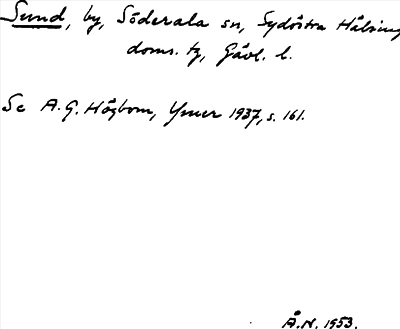 Sund, by, Söderala sn, Sydöstra Hälsing
doms. tg, Gävl. l.
Se A. G. Högbom, Ymer 1937, s. 161.
Å.N. 1953.